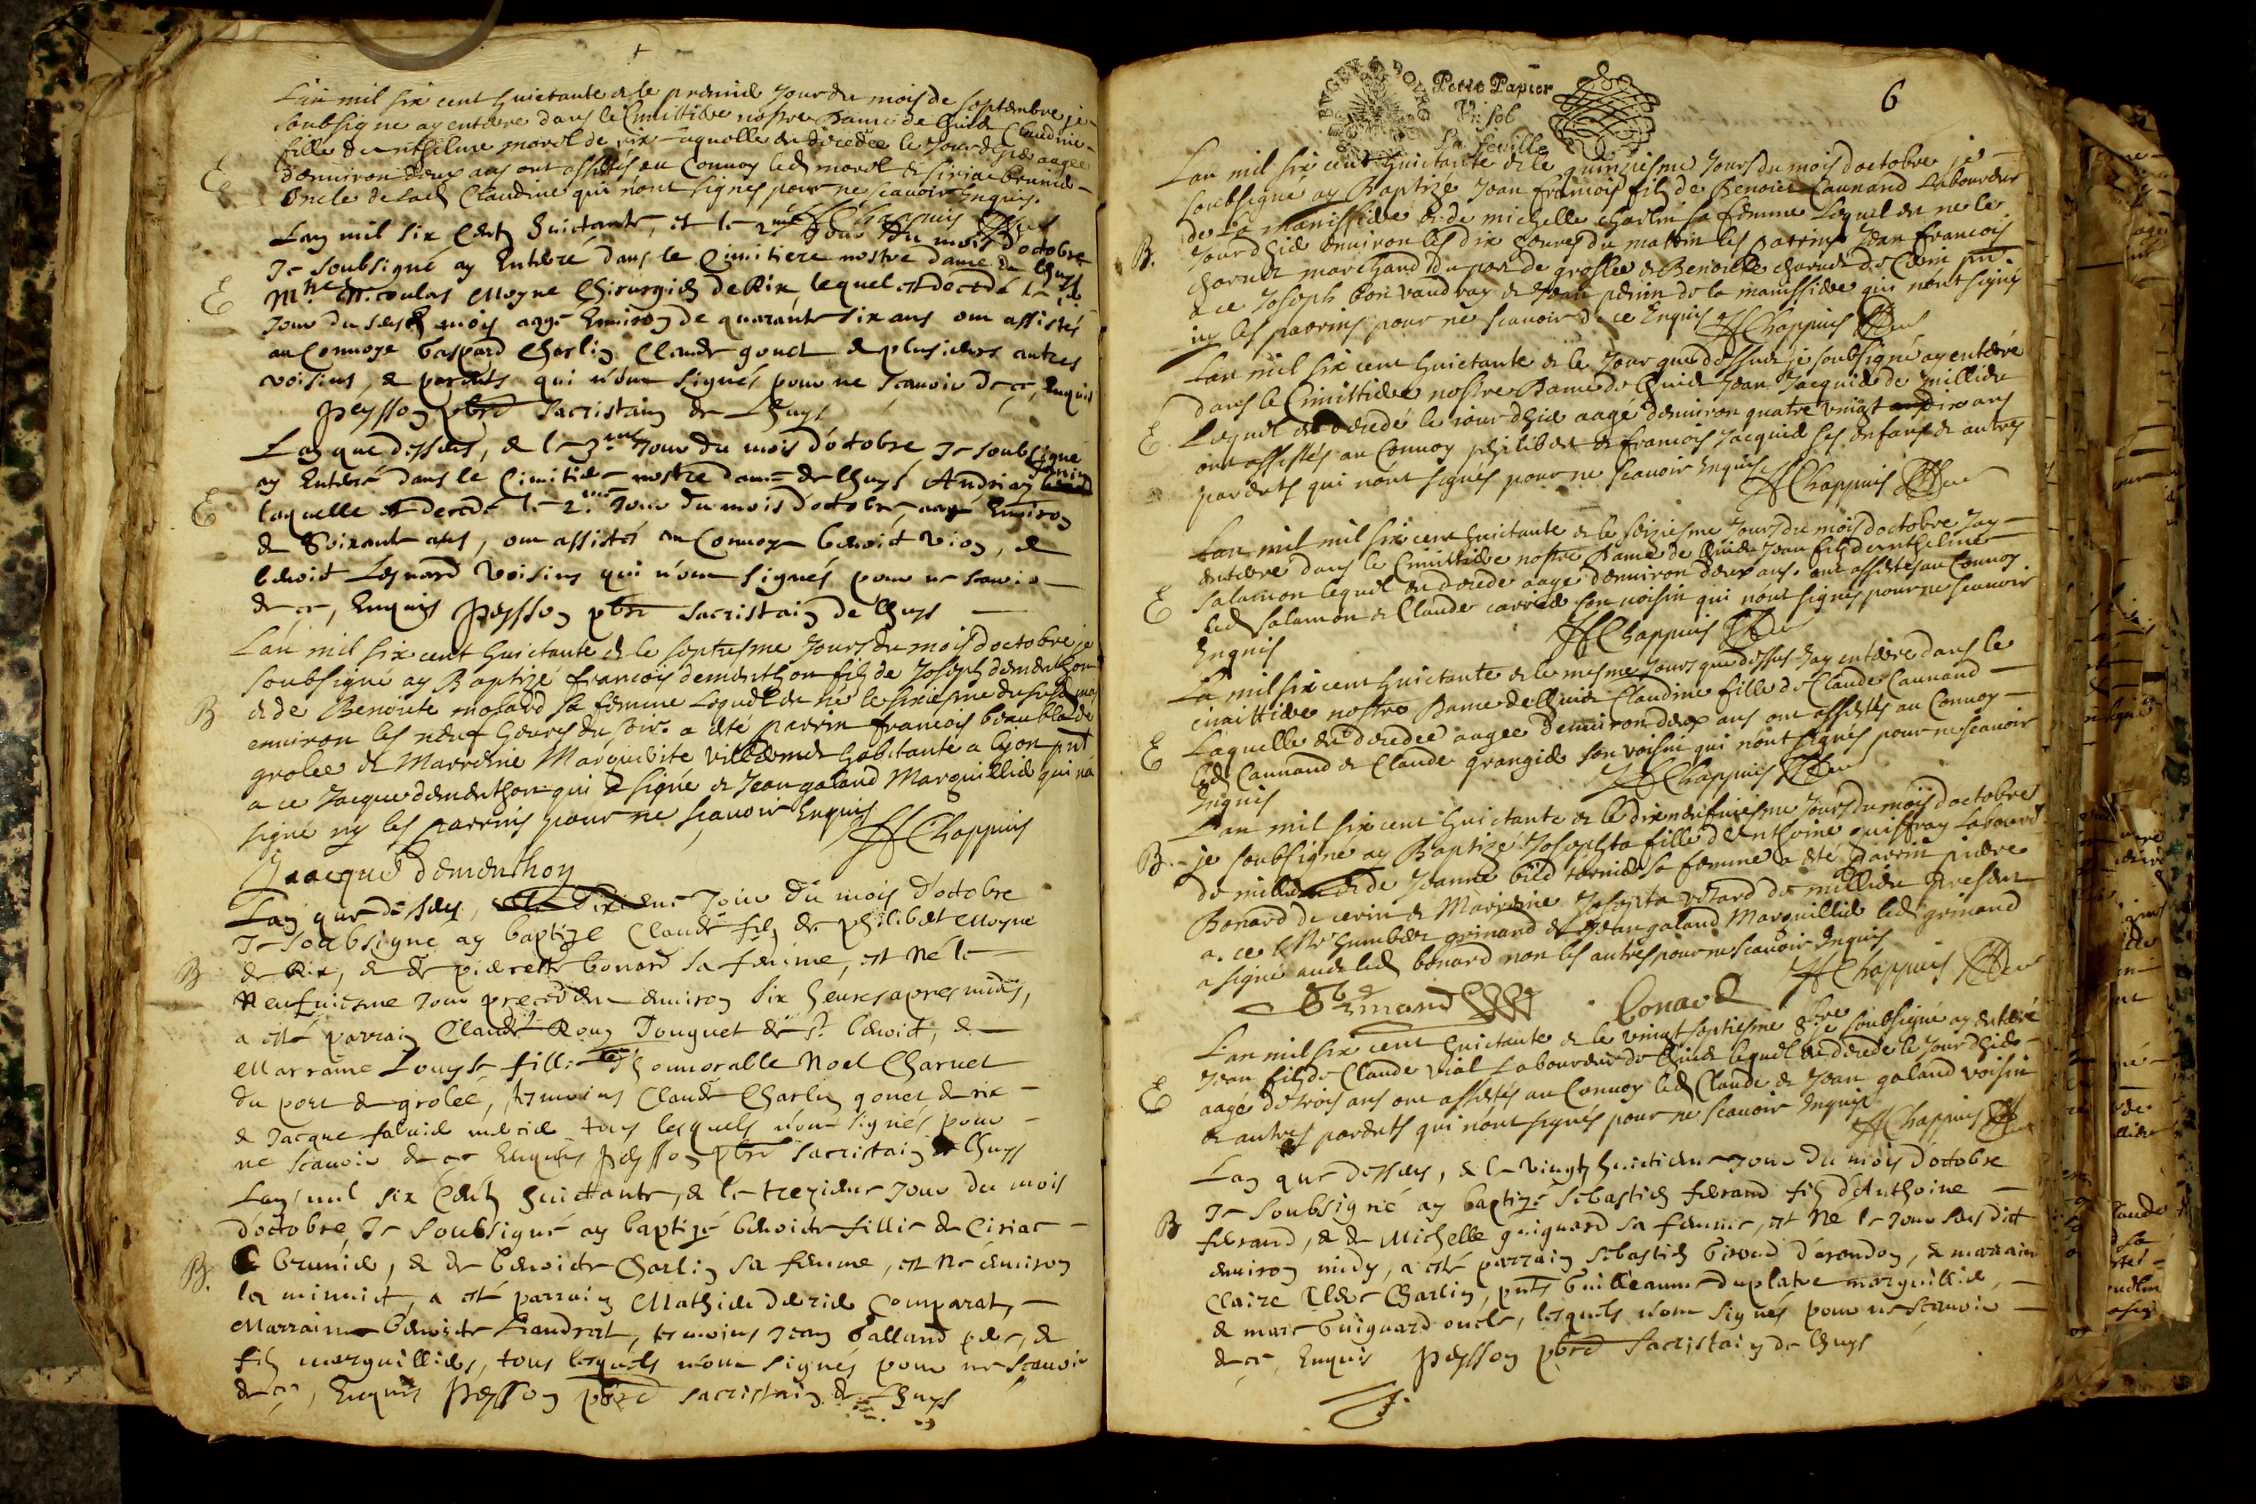 L'an mil six cent huictante et le premier jour du mois de septembre je
soubsigne ay enterre dans le Cimittiere nostre Dame de Lhuis Claudine
fille de anthelme morel de rix laquelle est decedee le jour dhier aagee
E denviron deux ans ont assistes au Convoy led morel et Siriac brunier
Oncle de lad Claudine qui nont signes pour ne scavoir enquis.
JfChappuis
Lan mil six Cent huictante, et le 2me jour du mois d'octobre
Je soubsigné ay Enterré dans le Cimitiere nostre dame de Lhuys
E Mtre Nicoulas Moyne Chirurgien de Rix, lequel est decedé le
jour du susd mois aagé Environ de quarante six ans ont assistés
au Convoye Gaspard Charlin Claude gonet & plusieurs autres
voisins, & parents qui n'ont signés pour ne scavoir de ce, enquis
Peysson pbre Sacristain de Lhuys
Lan que dessus, & le 3me Jour du mois d'octobre Je soubsigné
ay Enterré dans le Cimitiere nostre dame de Lhuys Andriaz
E laquelle est decedé le 2me Jour du mois d'octobre, aagé Environ
de Soixante ans, ont assistés au Convoye benoict vion, &
benoict Lesnard voisins qui n'ont signés pour ne scavoir
de ce, Enquis Peysson pbre sacristain de Lhuys
L'an mil six cent huictante et le septiesme Jours du mois doctobre je
soubsigne ay Baptizé francois dementhon fils de Joseph dementhon
B et de Benoite molard sa femme Lequel est né le sixiesme du susd mois
environ les neuf heures du soir. a esté parrin francois
grolee et Marreine Marguerite habitante a lyon pnt
a ce Jacque dementhon qui a signé et Jean galand Marguillier qui na
signé ny les parrins pour ne scavoir Enquis
JfChappuis
Jaacque Dementhon
Lan que dessus, Jour du mois d'octobre
Je soubsigné ay baptizé Claude fils de philibert Moyne
B de Rix, & de pierrette bonard sa femme, est Né le
Neufviesme Jour precedent environ Six heures apres midy,
a esté parrain Claude Rouy Jouguet de St benoict, &
Marraine Louyse fille honnorable Noel Charvet
du port de grolée, tesmoins Claude Charlin gonet de rix
& Jacque tous lesquels n'ont signés pour
ne scavoir de ce Enquis Peysson pbre Sacristain de Lhuys
Lan mil six Cent huictante, & le treziesme Jour du mois
d'octobre Je Soubsigné ay baptizé benoite fillie de Ciriac
B. brunier, & de benoite Charlin sa femme, est Né environ
la minuict, a esté parrain Mathieu Comparat,
Marraine benoite tesmoins Jean Galland pere, &
fils marguilliers, tous lesquels n'ont signés pour ne scavoir
de ce, Enquis Peysson pbre sacristain de Lhuys
BVGEY DOVRG
Petit Papier
Vn sol
La feuille
6
Lan mil six cent huictante et le quinziesme Jours du mois doctobre je
soubsigne ay Baptizé Jean francois fils de Benoict Caunand Laboureur
de La manissiere et de michelle Charlin sa femme Lequel est ne le
B. Jour dhier environ les dix heures du mattin les parrins Jean francois
charvet marchand du port de groslee et Benoite charvet de
a ce Joseph bonvaudray et Jean perrin de la manissiere qui n'ont signé
ny les parrins pour ne scavoir de ce Enquis JfChappuis
Lan mil six cent huictante et le Jour que dessus je soubsigne ay enterré
dans le Cimittiere nostre Dame de Lhuis Jean Jacquier de millieu
E Lequel est decedé le jour dhier aagé denviron quatre vingt ans
ont assistés au Convoy philibert et francois Jacquier ses enfans et autres
parents qui n'ont signés pour ne scavoir Enquis JfChappuis
Lan mil mil six cent huictante et le seiziesme Jours du mois doctobre Jay
enterré dans le Cimittiere nostre Dame de Lhuis Jean fils danthelme
E Salamon lequel est decede aage denviron deux ans. ont assistés au Convoy
led Salamon et Claude carrier son voisin qui n'ont signés pour ne scavoir
Enquis JfChappuis
La mil six cent huictante et le mesme Jours que dessus Jay enterré dans le
cimittiere nostre Dame de Lhuis Claudine fille de Claude Caunand
E Laquelle est decedee aagee denviron deux ans ont assistés au Convoy
led Caunand et Claude grangier son voisin qui n'ont signés pour ne scavoir
Enquis JfChappuis
Lan mil six cent huictante et le dixneufviesme Jours du mois doctobre
B. je soubsigne ay Baptizé Josephta fille d'Anthoine guiffray Laboureur
de millieu et de Jeanne sa femme a esté parrin pierre
Bonard de cerin et Marreine Josephta de millieu Present
a ce Mr humbert grimand et Jean galand Marguillier led grimand
a signé avec led bonard non les autres pour ne scavoir Enquis
JfChappuis
Grimand Bonard
Lan mil six cent huictante et le vingt septiesme 8bre je soubsigné ay enterré
Jean fils de Claude vial Laboureur de Lhuis lequel est decede le Jour dhier
E aagé de trois ans ont assistés au Convoy led Claude et Jean galand voisin
et autres parents qui n'ont signés pour ne scavoir Enquis
JfChappuis
Lan que dessus, & le vingt huictiesme Jour du mois d'octobre
Je Soubsigné ay baptizé Sebastien ferand fils d'Anthoine
B ferand, & de Michelle guiguard sa femme, est Né le Jour susdict
environ midy, a esté parrain Sebastien Giroud d'arandon, & marraine
Claire Charlin, pnts Guilleaume duplatre marguillier,
& marc Guiguard oncle, lesquels n'ont signés pour ne scavoir
de ce, Enquis Peysson pbre Sacristain de Lhuys